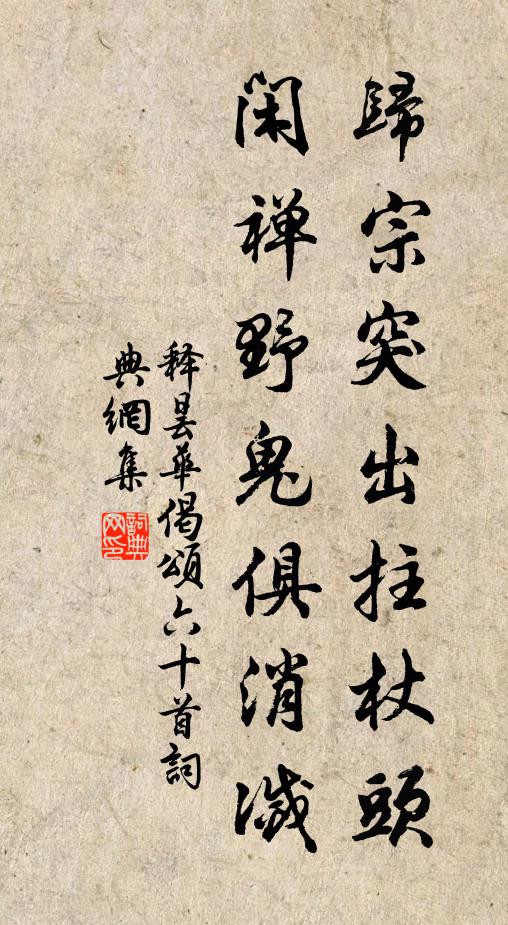 歸宗突出拄杖頭
閑禅野鬼俱消滅
释昙華偈頌六十首詞
典網集
詞典网印